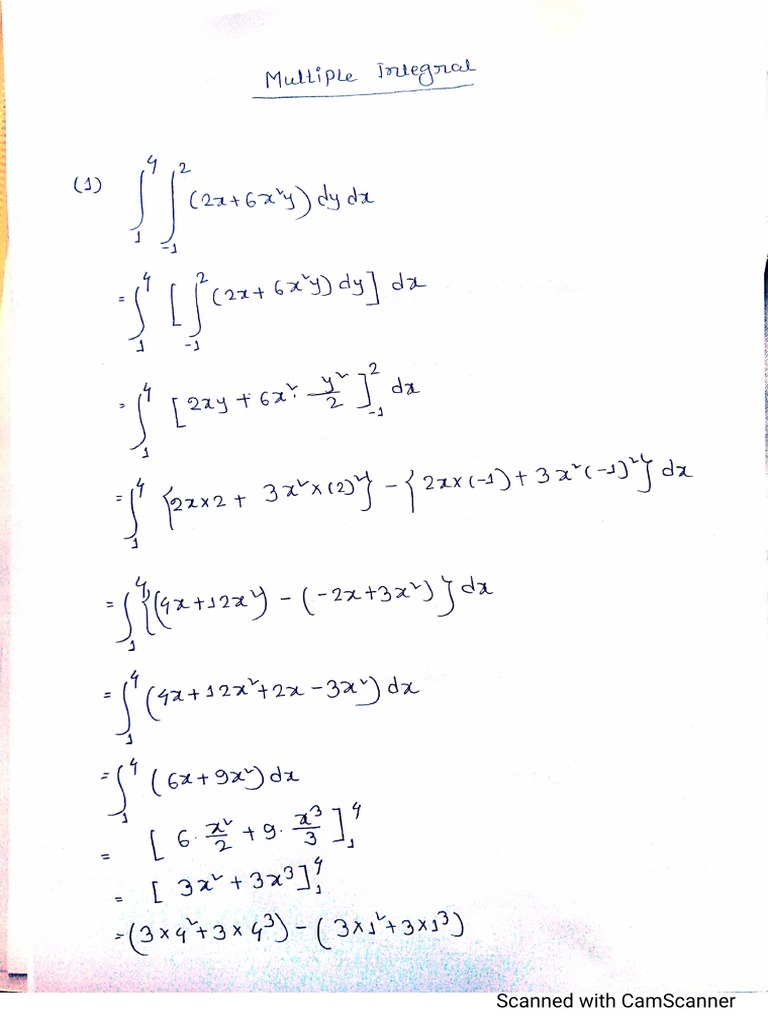 Multiple Integral
(1) ∫₁⁴ ∫₋₁² (2x+6x²y) dy dx
= ∫₁⁴ [ ∫₋₁² (2x+6x²y) dy ] dx
= ∫₁⁴ [ 2xy + 6x² · y²/2 ]₋₁² dx
= ∫₁⁴ {2x×2 + 3x²×(2)²} - {2x×(-1) + 3x²(-1)²} dx
= ∫₁⁴ {(4x+12x²) - (-2x+3x²)} dx
= ∫₁⁴ (4x+12x²+2x-3x²) dx
= ∫₁⁴ (6x+9x²) dx
= [ 6·x²/2 + 9·x³/3 ]₁⁴
= [ 3x² + 3x³ ]₁⁴
= (3×4²+3×4³) - (3×1²+3×1³)
Scanned with CamScanner